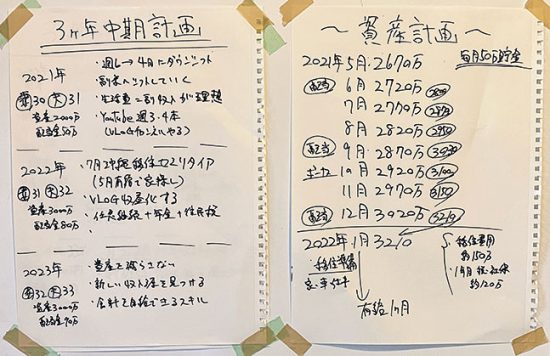 3ヶ年中期計画
2021年
・週6→4日にダウンシフト
・副業へシフトしていく
30 31
・生活費=副収入が理想
資産2000万
・YouTube週3.4本
配当金50万
2022年
・7月沖縄移住セミリタイア
31 32
(5月前後で家探し)
資産3000万
・VLOG収益化する
配当金80万
・住民税
2023年
・資産を減らさない
32 33
・新しい収入源を見つける
資産3000万
・余計を自給できるスキル
配当金90万
〜資産計画〜
毎月50万貯金
2021年5月・2670万
配当 6月 2720万
7月 2770万
8月 2820万
配当 9月・2870万
ボーナス 10月 2920万 3100
11月 2970万 3150
配当 12月 3020万 3210
2022年1月 3210
・移住準備
移住費用
約150万
約120万
有給1ヶ月